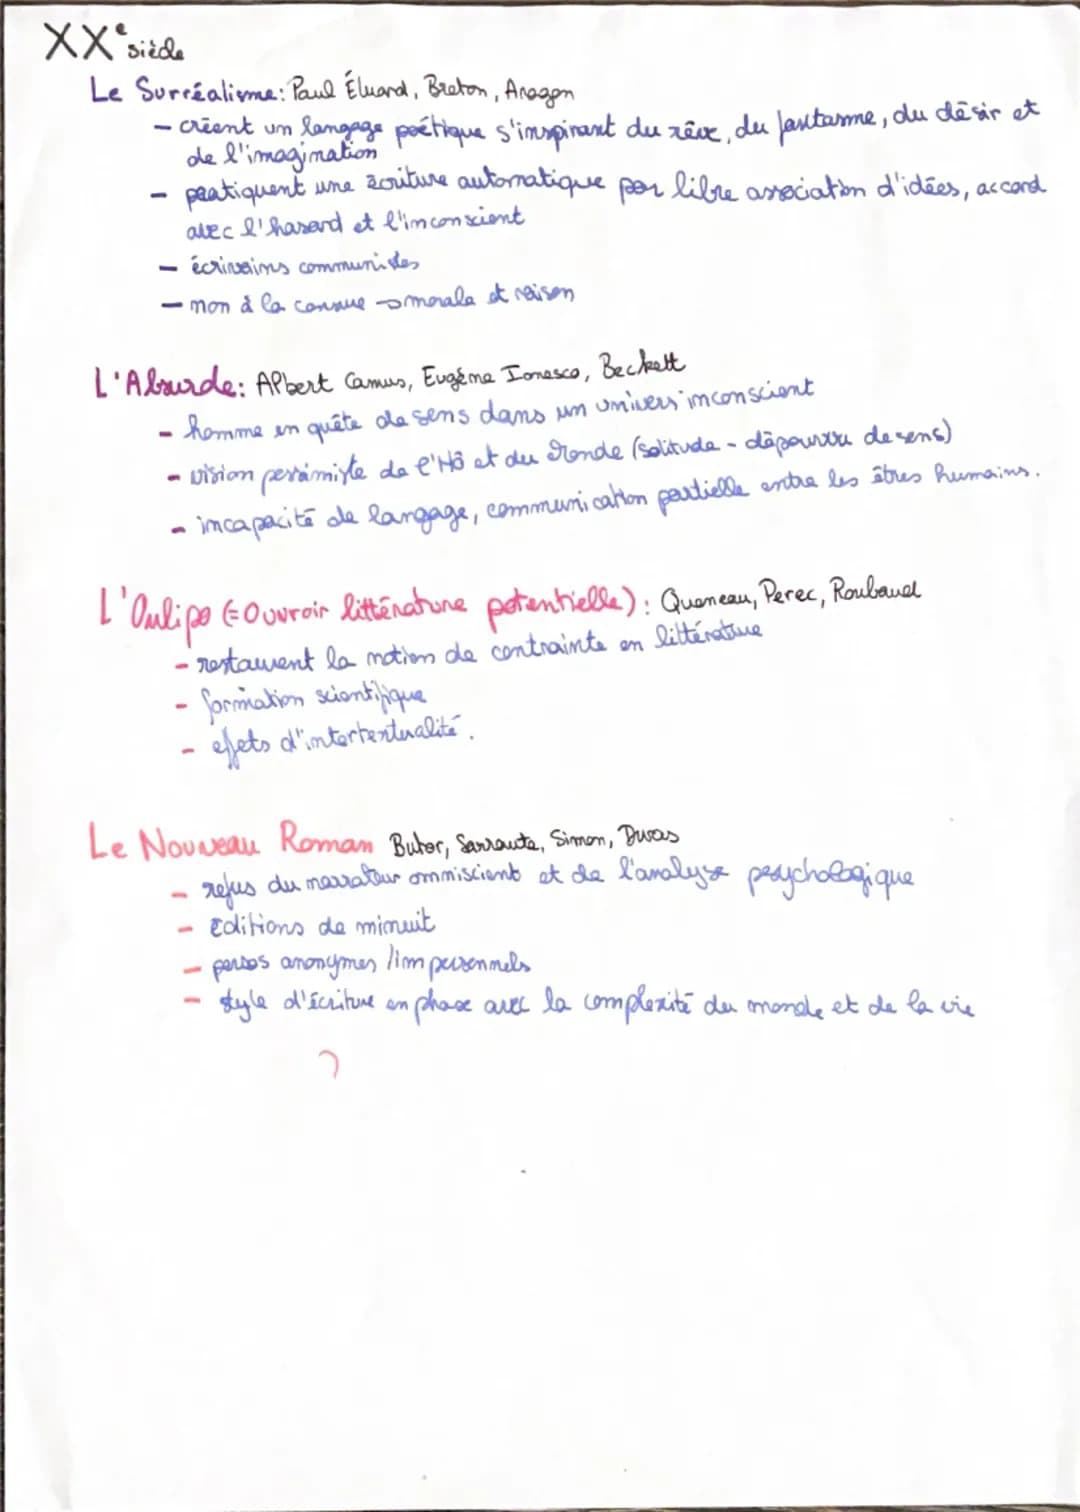 XXe siècle
Le Surréalisme: Paul Éluard, Breton, Aragon
- créent un langage poétique s'inspirant du rêve, du fantasme, du désir et
de l'imagination
- pratiquent une écriture automatique par libre association d'idées, accord
avec l'hasard et l'inconscient
- écrivains communistes
- non à la connue → morale et raison
L'Absurde: Albert Camus, Eugène Ionesco, Beckett
- homme en quête de sens dans un univers inconscient
- vision pessimiste de l'Hô et du Monde (solitude - dépourvu de sens)
- incapacité de langage, communication partielle entre les êtres humains.
L'Oulipo (= Ouvroir littérature potentielle): Queneau, Perec, Roubaud
- restaurent la notion de contrainte en littérature
- formation scientifique
- effets d'intertextualité.
Le Nouveau Roman Butor, Sarraute, Simon, Duras
- refus du narrateur ommiscient et de l'analyse psychologique
- Editions de minuit
- persos anonymes / impersonnels
- style d'écriture en phase avec la complexité du monde et de la vie